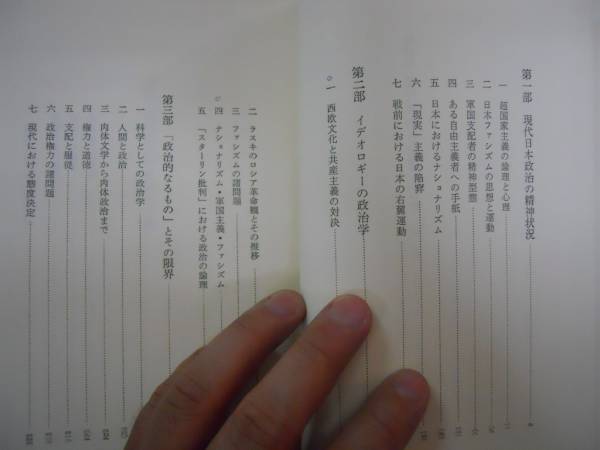 第一部 現代日本政治の精神状況
一 超国家主義の論理と心理
二 日本ファシズムの思想と運動
三 軍国支配者の精神形態
四 ある自由主義者への手紙
五 日本におけるナショナリズム
六 「現実」主義の陥穽
七 戦前における日本の右翼運動
第二部 イデオロギーの政治学
一 西欧文化と共産主義の対決
二 ラスキのロシア革命観とその推移
三 ファシズムの諸問題
四 ナショナリズム・軍国主義・ファシズム
五 「スターリン批判」における政治の論理
第三部 「政治的なるもの」とその限界
一 科学としての政治学
二 人間と政治
三 肉体文学から肉体政治まで
四 権力と道徳
五 支配と服従
六 政治権力の諸問題
七 現代における態度決定